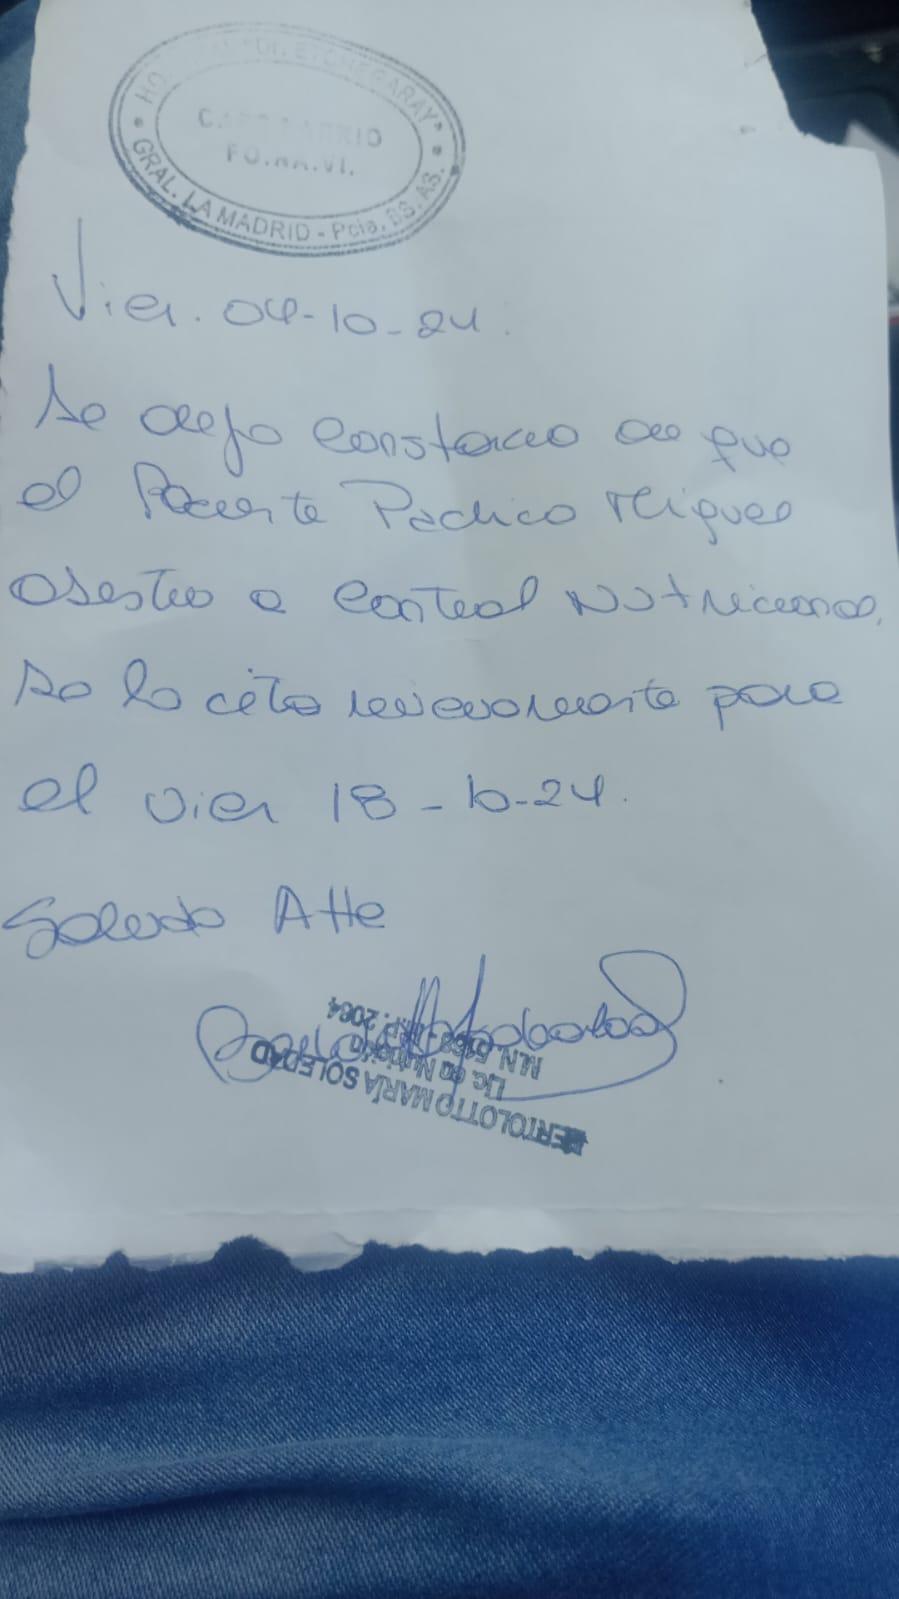 HOSPITAL "DR. ETCHEGARAY"
CAPS BARRIO
FO.NA.VI.
GRAL. LA MADRID - Pcia. BS. AS.
Vier. 04-10-24.
Se deja constancia de que
el Paciente Pachico Miguel
asistio a control Nutricional.
Se lo cita nuevamente para
el vier 18-10-24.
Saludo Atte
BERTOLOTTO MARÍA SOLEDAD
Lic. en Nutrición
M.N. 5168 - M.P. 2064